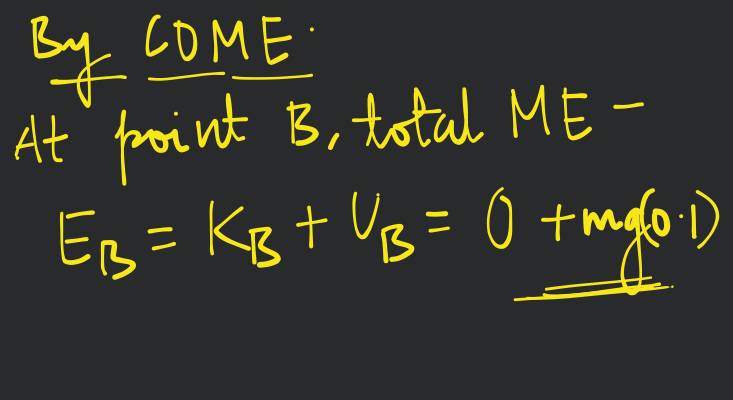 By COME.
At point B, total ME -
E_B = K_B + U_B = 0 + mg(0.1)